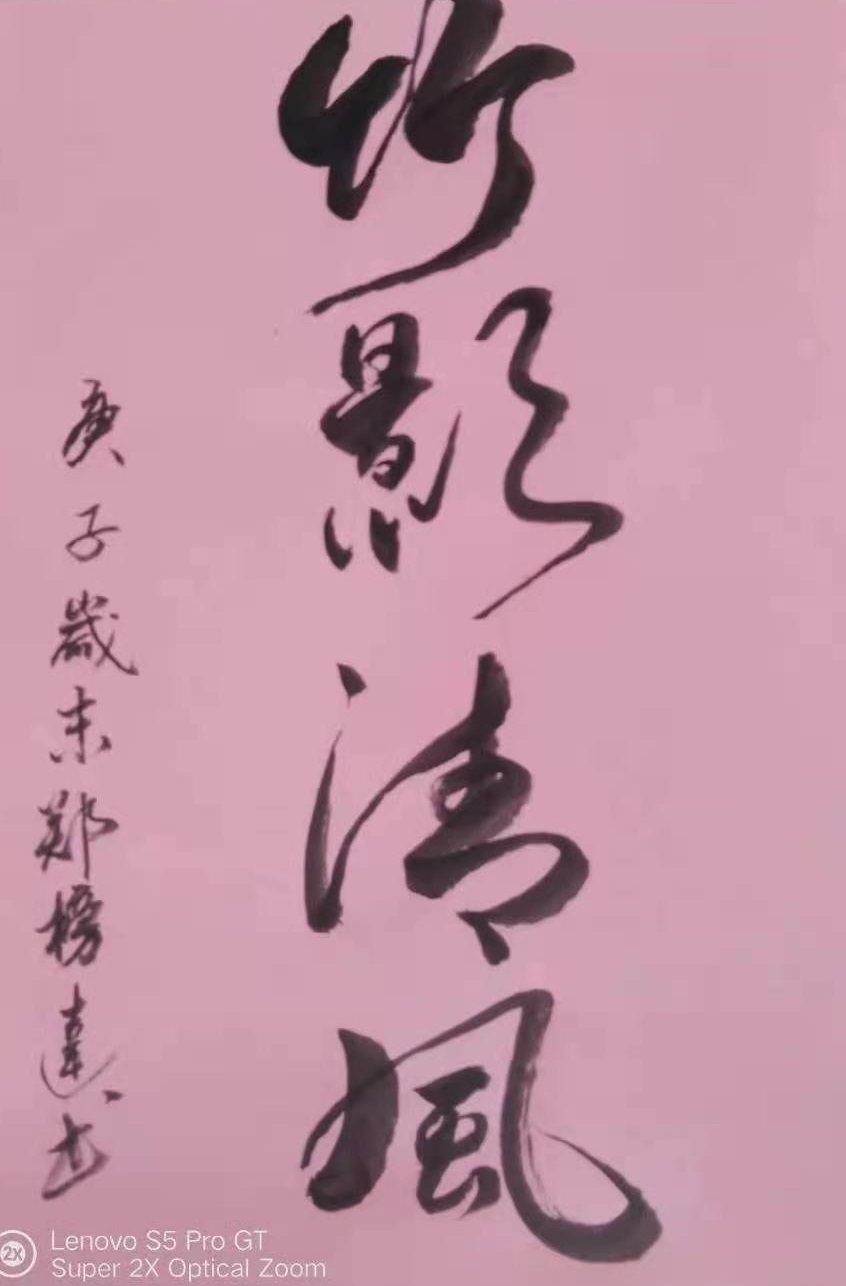 竹影清風
庚子歲末郑榜達书
Lenovo S5 Pro GT
Super 2X Optical Zoom
2X